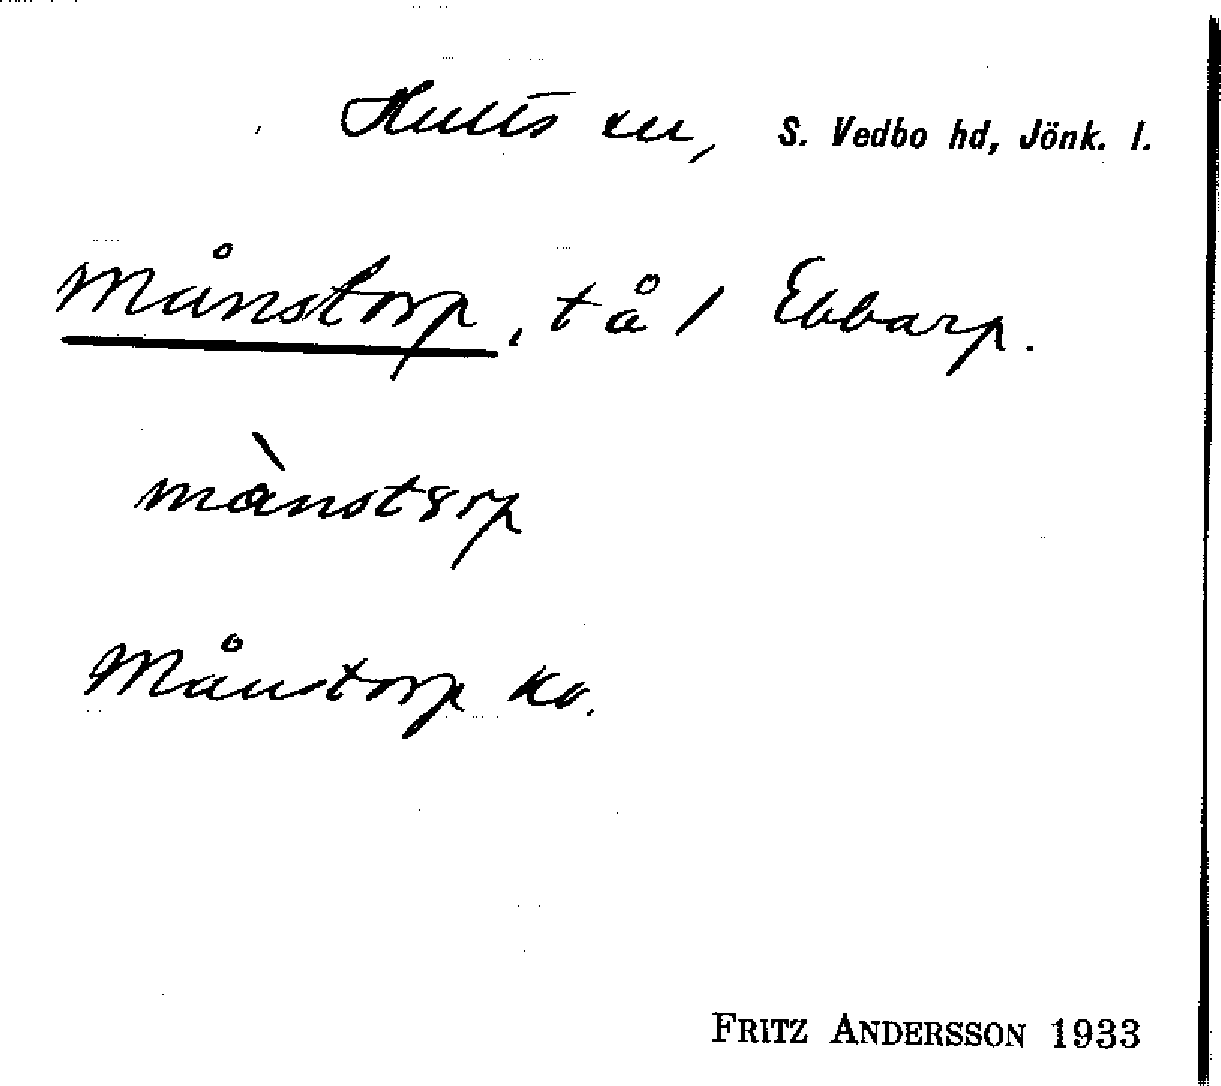 Hults sn, S. Vedbo hd, Jönk. l.
Månstorp, t å / Ebbarp.
mànstɤrp
Månstorp kv.
FRITZ ANDERSSON 1933